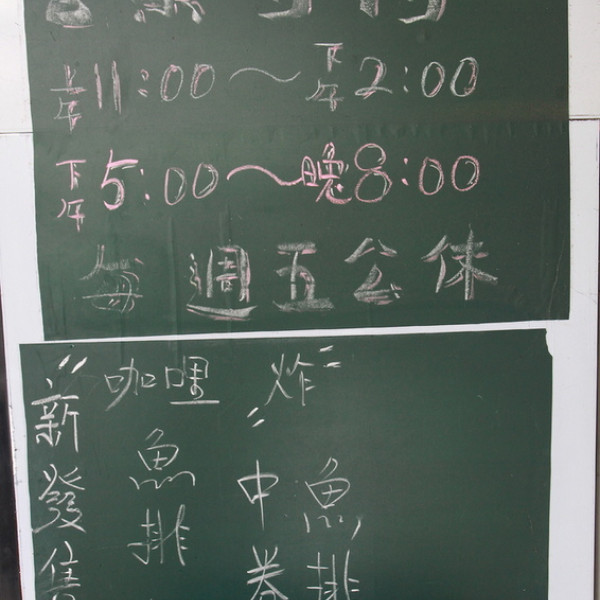 營業時間
上午11:00～下午2:00
下午5:00～晚8:00
每週五公休
新發售
咖哩魚排
炸
中卷
魚排